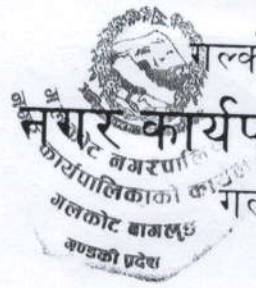 गल्क
नगर कार्यप
गल
कोट नगरपालि
कार्यपालिकाको
गलकोट बागलुङ
गण्डकी प्रदेश